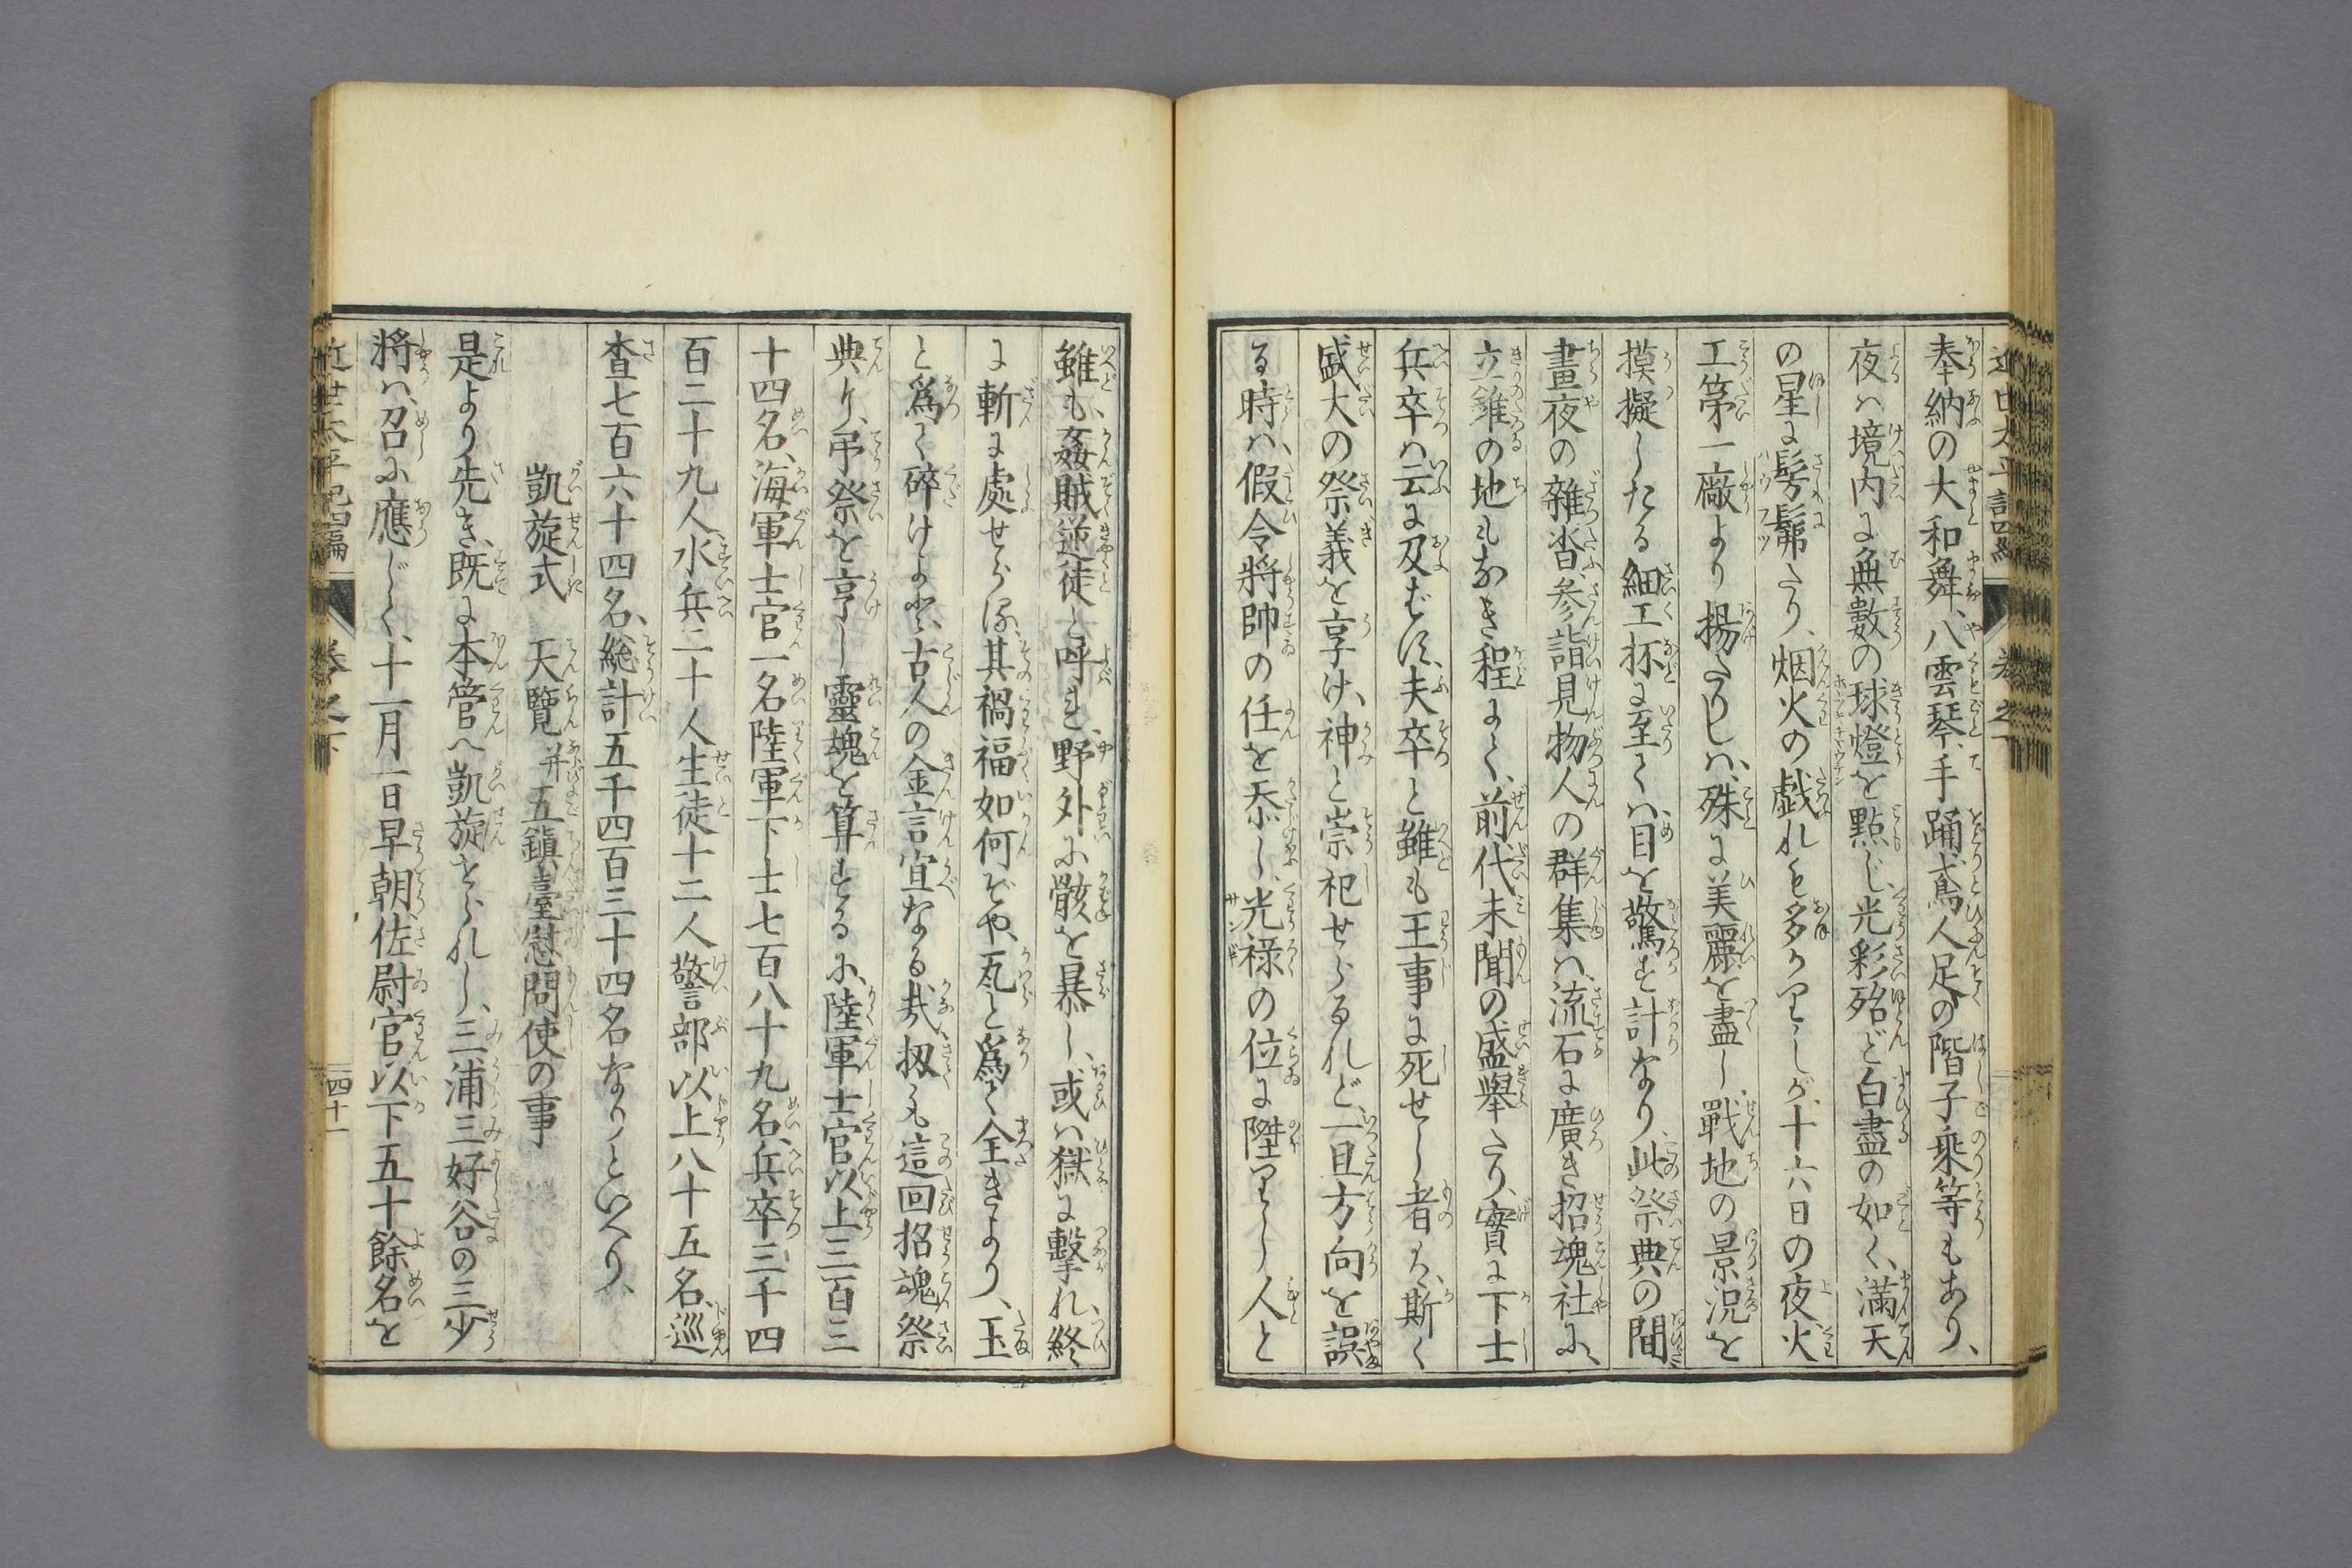 奉納の大和舞、八雲琴、手踊、鳶人足の階子乗等もあり、
夜ハ境内に無數の球燈を點じ、光彩殆ど白晝の如く、滿天
の星に髣髴たり、烟火の戯れも多かりしが、十六日の夜、火
工第一廠より揚たりしハ、殊に美麗を盡し、戰地の景況を
摸擬したる細工抔に至てハ、目を驚す計なり、此祭典の間
晝夜の雜沓、參詣見物人の群集ハ、流石に廣き招魂社に、
立錐の地もなき程にて、前代未聞の盛擧たり、實に下士
兵卒ハ云に及ばず、夫卒と雖も王事に死せし者ハ、斯く
盛大の祭義を享け、神と崇祀せらるれど、一旦方向を誤
る時ハ、假令將帥の任を忝し、光祿の位に陞りし人と
雖も、姦賊逆徒と呼れ、野外に骸を暴し、或ハ獄に擊れ、終
に斬に處せらる、其禍福如何ぞや、瓦と爲て全きより、玉
と爲て碎けよと、古人の金言宜なる哉、扨も這回招魂祭
典り、弔祭を享し靈魂を算するに、陸軍士官以上三百三
十四名、海軍士官一名、陸軍下士七百八十九名、兵卒三千四
百二十九人、水兵二十人生徒十二人警部以上八十五名、巡
查七百六十四名、総計五千四百三十四名なりといへり、
凱旋式 天覽并五鎭臺慰問使の事
是より先き、既に本管へ凱旋せられし、三浦三好谷の三少
將ハ、召に應じて、十一月一日早朝、佐尉官以下五十餘名を
近世太平記四編 卷之下 四十一